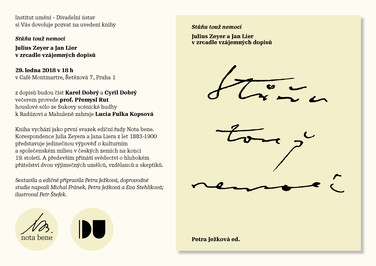 Institut umění – Divadelní ústav
si Vás dovoluje pozvat na uvedení knihy
Stůňu touž nemocí
Julius Zeyer a Jan Lier
v zrcadle vzájemných dopisů
29. ledna 2018 v 18 h
v Café Montmartre, Řetězová 7, Praha 1
z dopisů budou číst Karel Dobrý a Cyril Dobrý
večerem provede prof. Přemysl Rut
houslové sólo ze Sukovy scénické hudby
k Radúzovi a Mahuleně zahraje Lucia Fulka Kopsová
Kniha vychází jako první svazek ediční řady Nota bene.
Korespondence Julia Zeyera a Jana Liera z let 1883–1900
představuje jedinečnou výpověď o kulturním
a společenském milieu v českých zemích na konci
19. století. A především přináší svědectví o hlubokém
přátelství dvou výjimečných umělců, vzdělanců a skeptiků.
Sestavila a edičně připravila Petra Ježková, doprovodné
studie napsali Michal Fránek, Petra Ježková a Eva Stehlíková;
ilustroval Petr Štefek.
nota bene
DU
Stůňu touž nemocí
Julius Zeyer a Jan Lier
v zrcadle vzájemných dopisů
Stůňu
touž
nemocí
Petra Ježková ed.